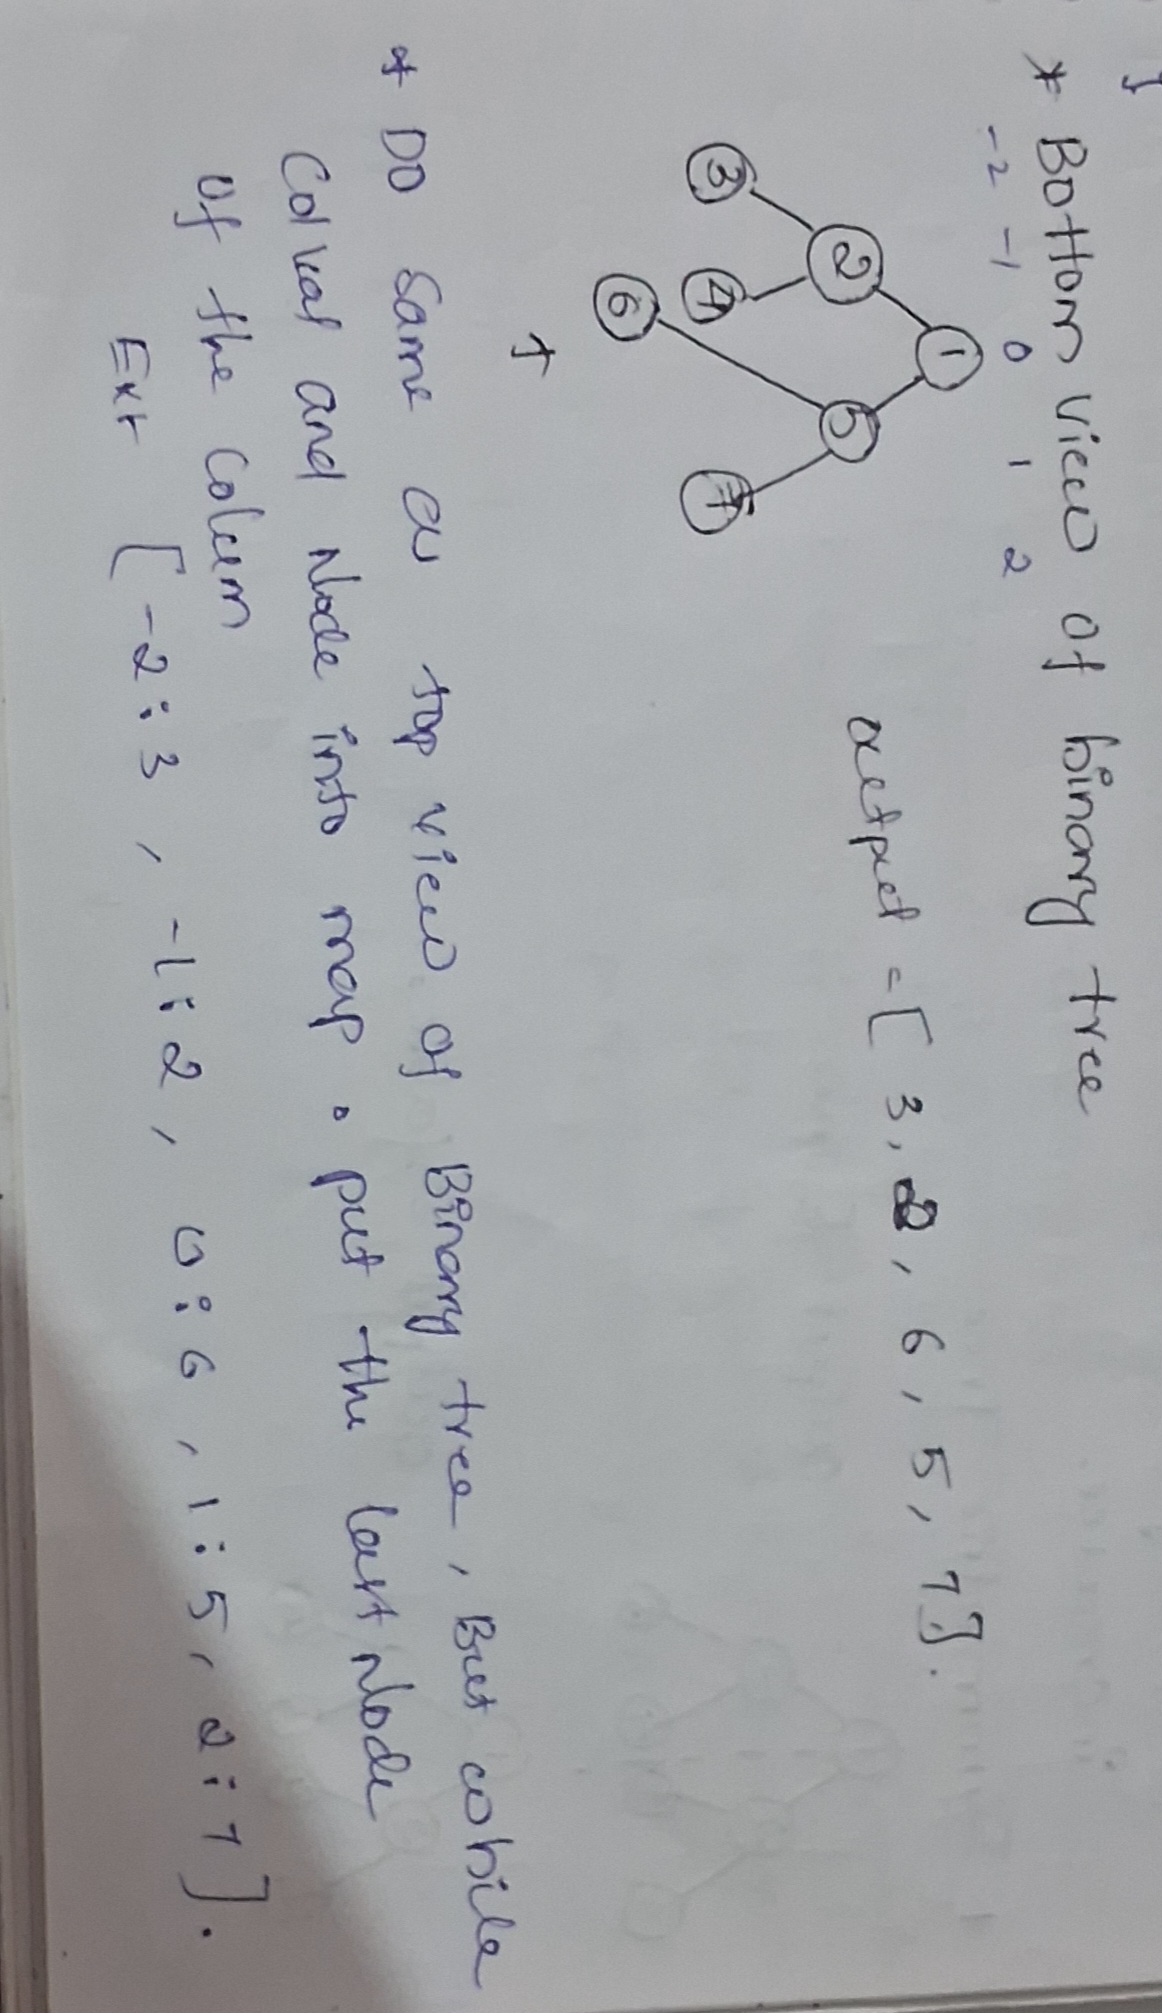 }
* Bottom view of binary tree
-2 -1 0 1 2
1
2 5
3 4 7
6
output = [ 3, 2, 6, 5, 7].
↑
* Do Same as top view of Binary tree, But while
Col val and Node into map. put the last Node
of the Colum
Ext [ -2 : 3 , -1 : 2 , 0 : 6 , 1 : 5 , 2 : 7 ].